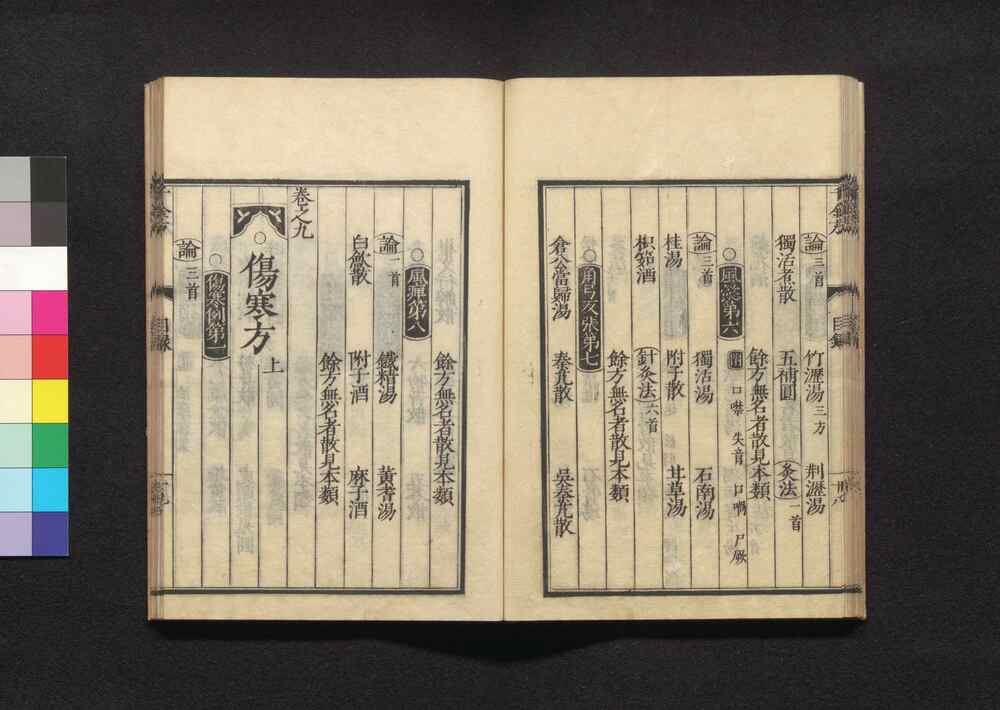 論 三首 竹瀝湯 三方 荆瀝湯
獨活煮散 五補圓 灸法 一首
餘方無名者散見本類
風懿第六 口噤 失音 口喎 尸厥
論 三首 獨活湯 石南湯
桂湯 附子散 甘草湯
枳茹酒 針灸法 六首
餘方無名者散見本類
角弓反張第七
倉公當歸湯 秦艽散 吳秦艽散
餘方無名者散見本類
風痺第八
論 一首 鐵精湯 黃耆湯
白斂散 附子酒 麻子酒
餘方無名者散見本類
卷之九
傷寒方 上
傷寒例第一
論 三首